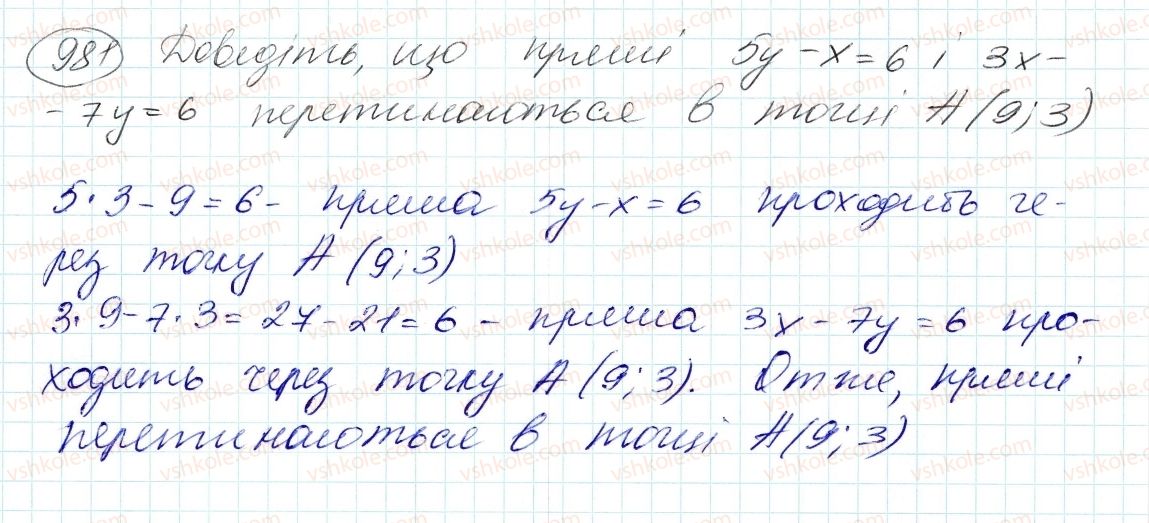 981 Доведіть, що прямі 5y - x = 6 і 3x -
- 7y = 6 перетинаються в точці A (9; 3)
5 · 3 - 9 = 6 - пряма 5y - x = 6 проходить че-
рез точку A (9; 3)
3 · 9 - 7 · 3 = 27 - 21 = 6 - пряма 3x - 7y = 6 про-
ходить через точку A (9; 3). Отже, прямі
перетинаються в точці A (9; 3)
vshkole.com